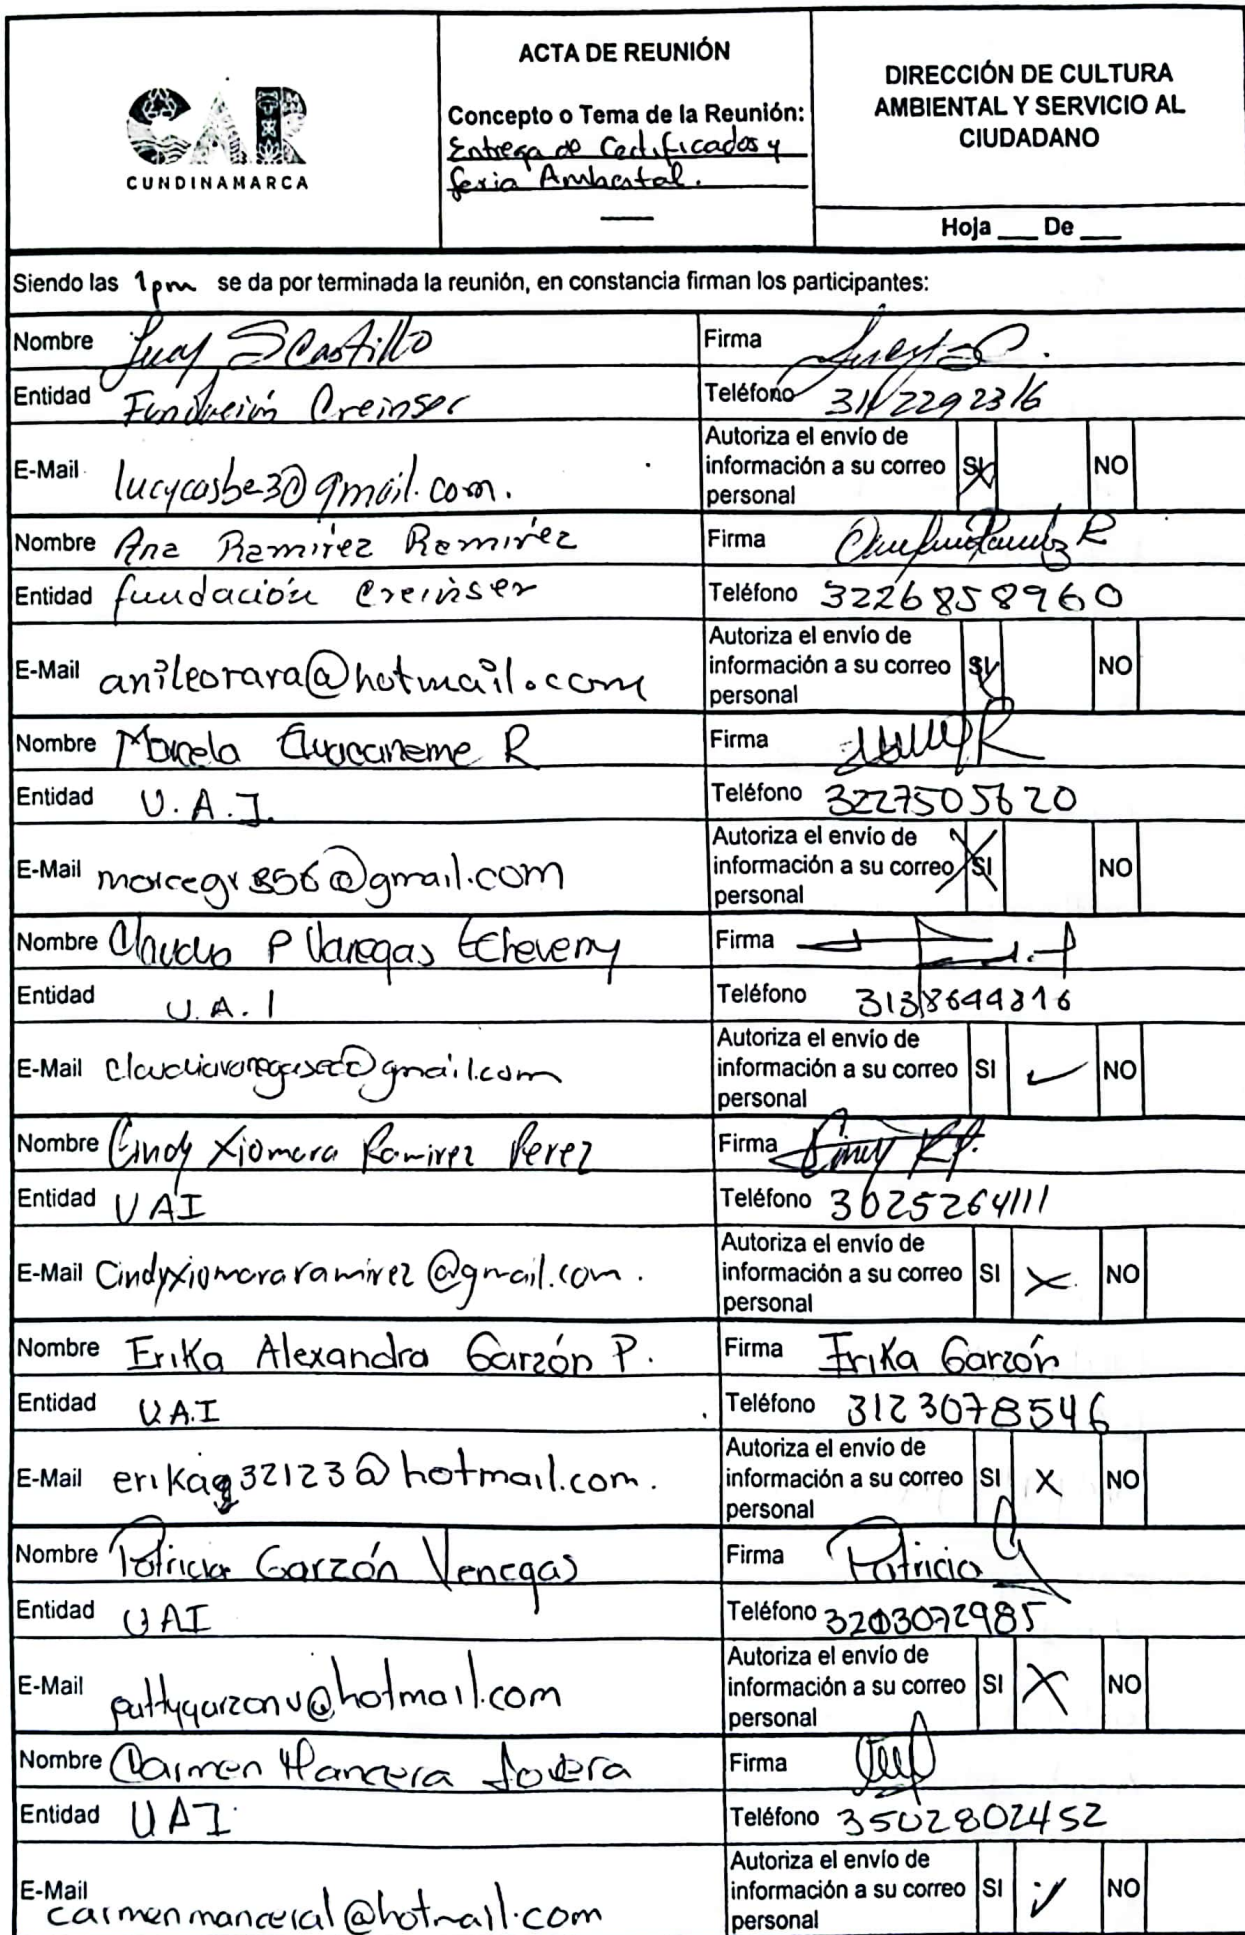 CAR
CUNDINAMARCA
ACTA DE REUNIÓN
Concepto o Tema de la Reunión:
Entrega de Certificados y
feria Ambiental.
DIRECCIÓN DE CULTURA
AMBIENTAL Y SERVICIO AL
CIUDADANO
Hoja ___ De ___
Siendo las 1pm se da por terminada la reunión, en constancia firman los participantes:
Nombre Lucy S Castillo Firma
Entidad Fundación Creinser Teléfono 3112292316
E-Mail lucycasbe3@gmail.com.
Autoriza el envío de
información a su correo SI NO
personal
Nombre Ana Ramírez Ramírez Firma
Entidad fundación creinser Teléfono 3226858960
E-Mail anileorara@hotmail.com
Autoriza el envío de
información a su correo SI NO
personal
Nombre Marcela Guacaneme R Firma
Entidad U.A.I. Teléfono 3227505620
E-Mail marcegr856@gmail.com
Autoriza el envío de
información a su correo SI NO
personal
Nombre Claudia P Vanegas Echeverry Firma
Entidad U.A.I Teléfono 3138644816
E-Mail
Autoriza el envío de
información a su correo SI NO
personal
Nombre Cindy Xiomara Ramirez Perez Firma
Entidad UAI Teléfono 3025264111
E-Mail Cindyxiomararamirez@gmail.com.
Autoriza el envío de
información a su correo SI X NO
personal
Nombre Erika Alexandra Garzón P. Firma Erika Garzón
Entidad U.A.I Teléfono 3123078546
E-Mail erikag32123@hotmail.com.
Autoriza el envío de
información a su correo SI X NO
personal
Nombre Patricia Garzón Venegas Firma Patricia G
Entidad UAI Teléfono 3203072985
E-Mail pattygarzonv@hotmail.com
Autoriza el envío de
información a su correo SI X NO
personal
Nombre Carmen Mancera Firma
Entidad UAI Teléfono 3502802452
E-Mail carmenmanceral@hotmail.com
Autoriza el envío de
información a su correo SI NO
personal